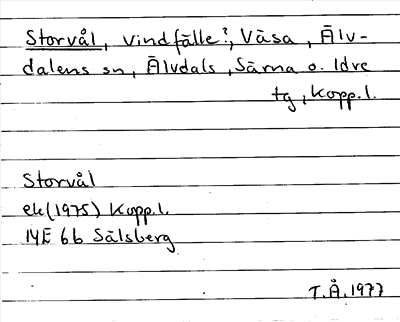 Storvål, vindfälle?, Väsa, Älv-
dalens sn, Älvdals, Särna o. Idre
tg, Kopp.l.
Storvål
ek(1975) Kopp.l.
14E 6b Sälsberg
T.Å.1977